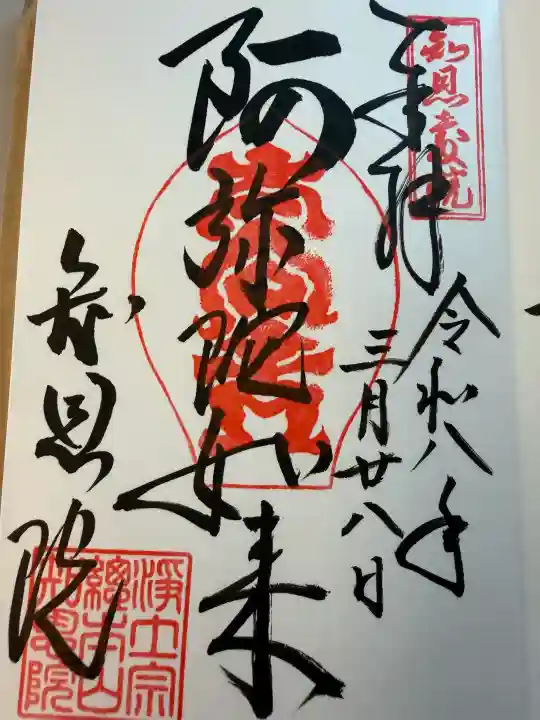 奉拝
令和八年
三月廿八日
阿弥陀如来
知恩院
浄土宗
總本山
知恩院